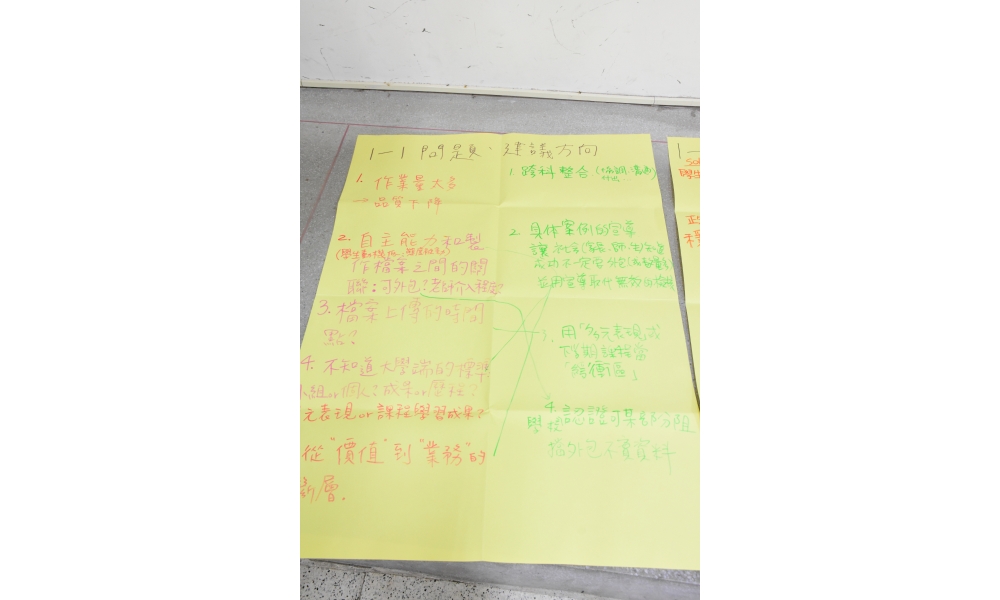 1-1 問題、建議方向
1. 作業量太多
→ 品質下降
2. 自主能力和製
(學生動機
作檔案之間的關
聯：可外包？老師介入程度？
3. 檔案上傳的時間
點？
4. 不知道大學端的標準
小組or個人？成果or歷程？
元表現or課程學習成果？
從"價值"到"業務"的
斷層.
1. 跨科整合
2. 具体案例的宣導
讓社會(家長、師、生)知道
成功不一定
並用宣導取代無效的
3. 用「多元表現」或
下學期課程當
「緩衝區」
4. 學校認證可某部分阻
擋外包不實資料
1-
學生